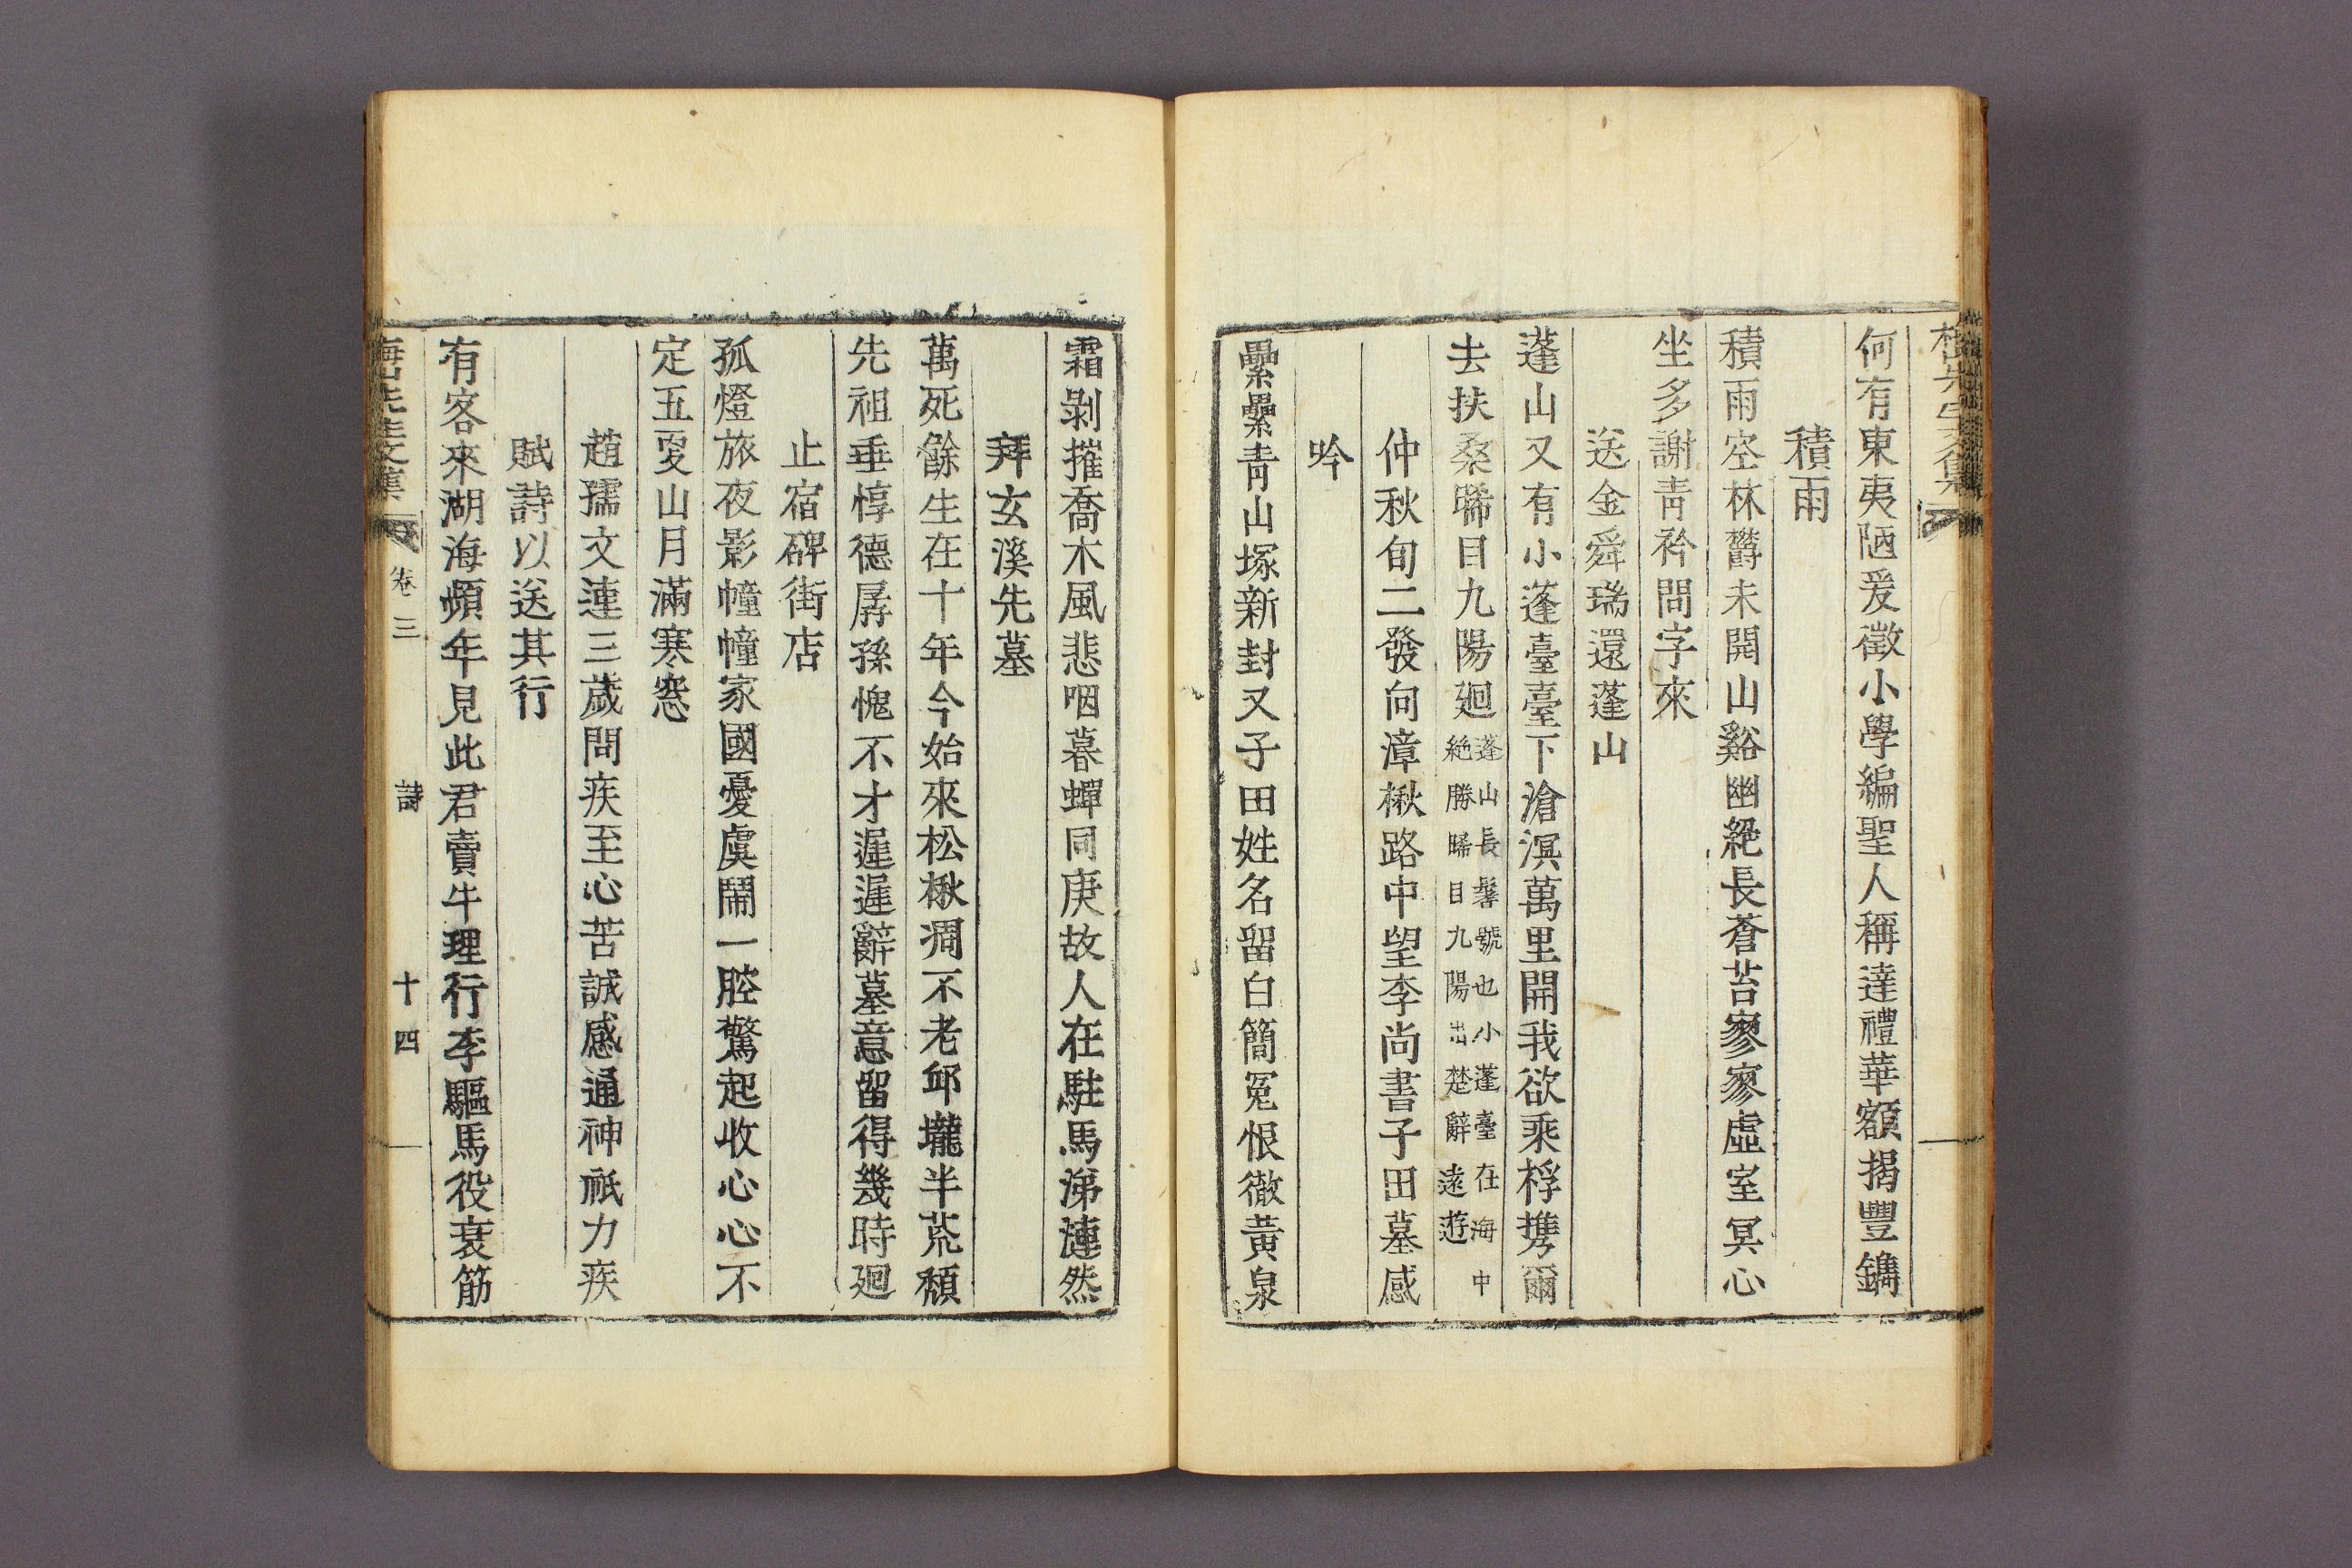 何有東夷陋爰徵小學編聖人稱達禮華額揭豐鐫
積雨
積雨空林欝未開山谿幽絶長蒼苔寥寥虛室冥心
坐多謝靑衿問字來
送金舜瑞還蓬山
蓬山又有小蓬臺臺下滄溟萬里開我欲乘桴携爾
去扶桑晞目九陽廻
蓬山長鬐號也小蓬臺在海中
絶勝晞目九陽出楚辭遠遊
仲秋旬二發向漳楸路中望李尙書子田墓感
吟
纍纍靑山塚新封又子田姓名留白簡冤恨徹黃泉
霜剝摧喬木風悲咽暮蟬同庚故人在駐馬涕漣然
拜玄溪先墓
萬死餘生在十年今始來松楸凋不老邱壠半荒頹
先祖垂惇德孱孫愧不才遲遲辭墓意留得幾時廻
止宿碑街店
孤燈旅夜影幢幢家國憂虞鬧一腔驚起收心心不
定五更山月滿寒窓
趙孺文連三歲問疾至心苦誠感通神祇力疾
賦詩以送其行
有客來湖海頻年見此君賣牛理行李驅馬役衰筋
先生文集
卷三
詩
十四